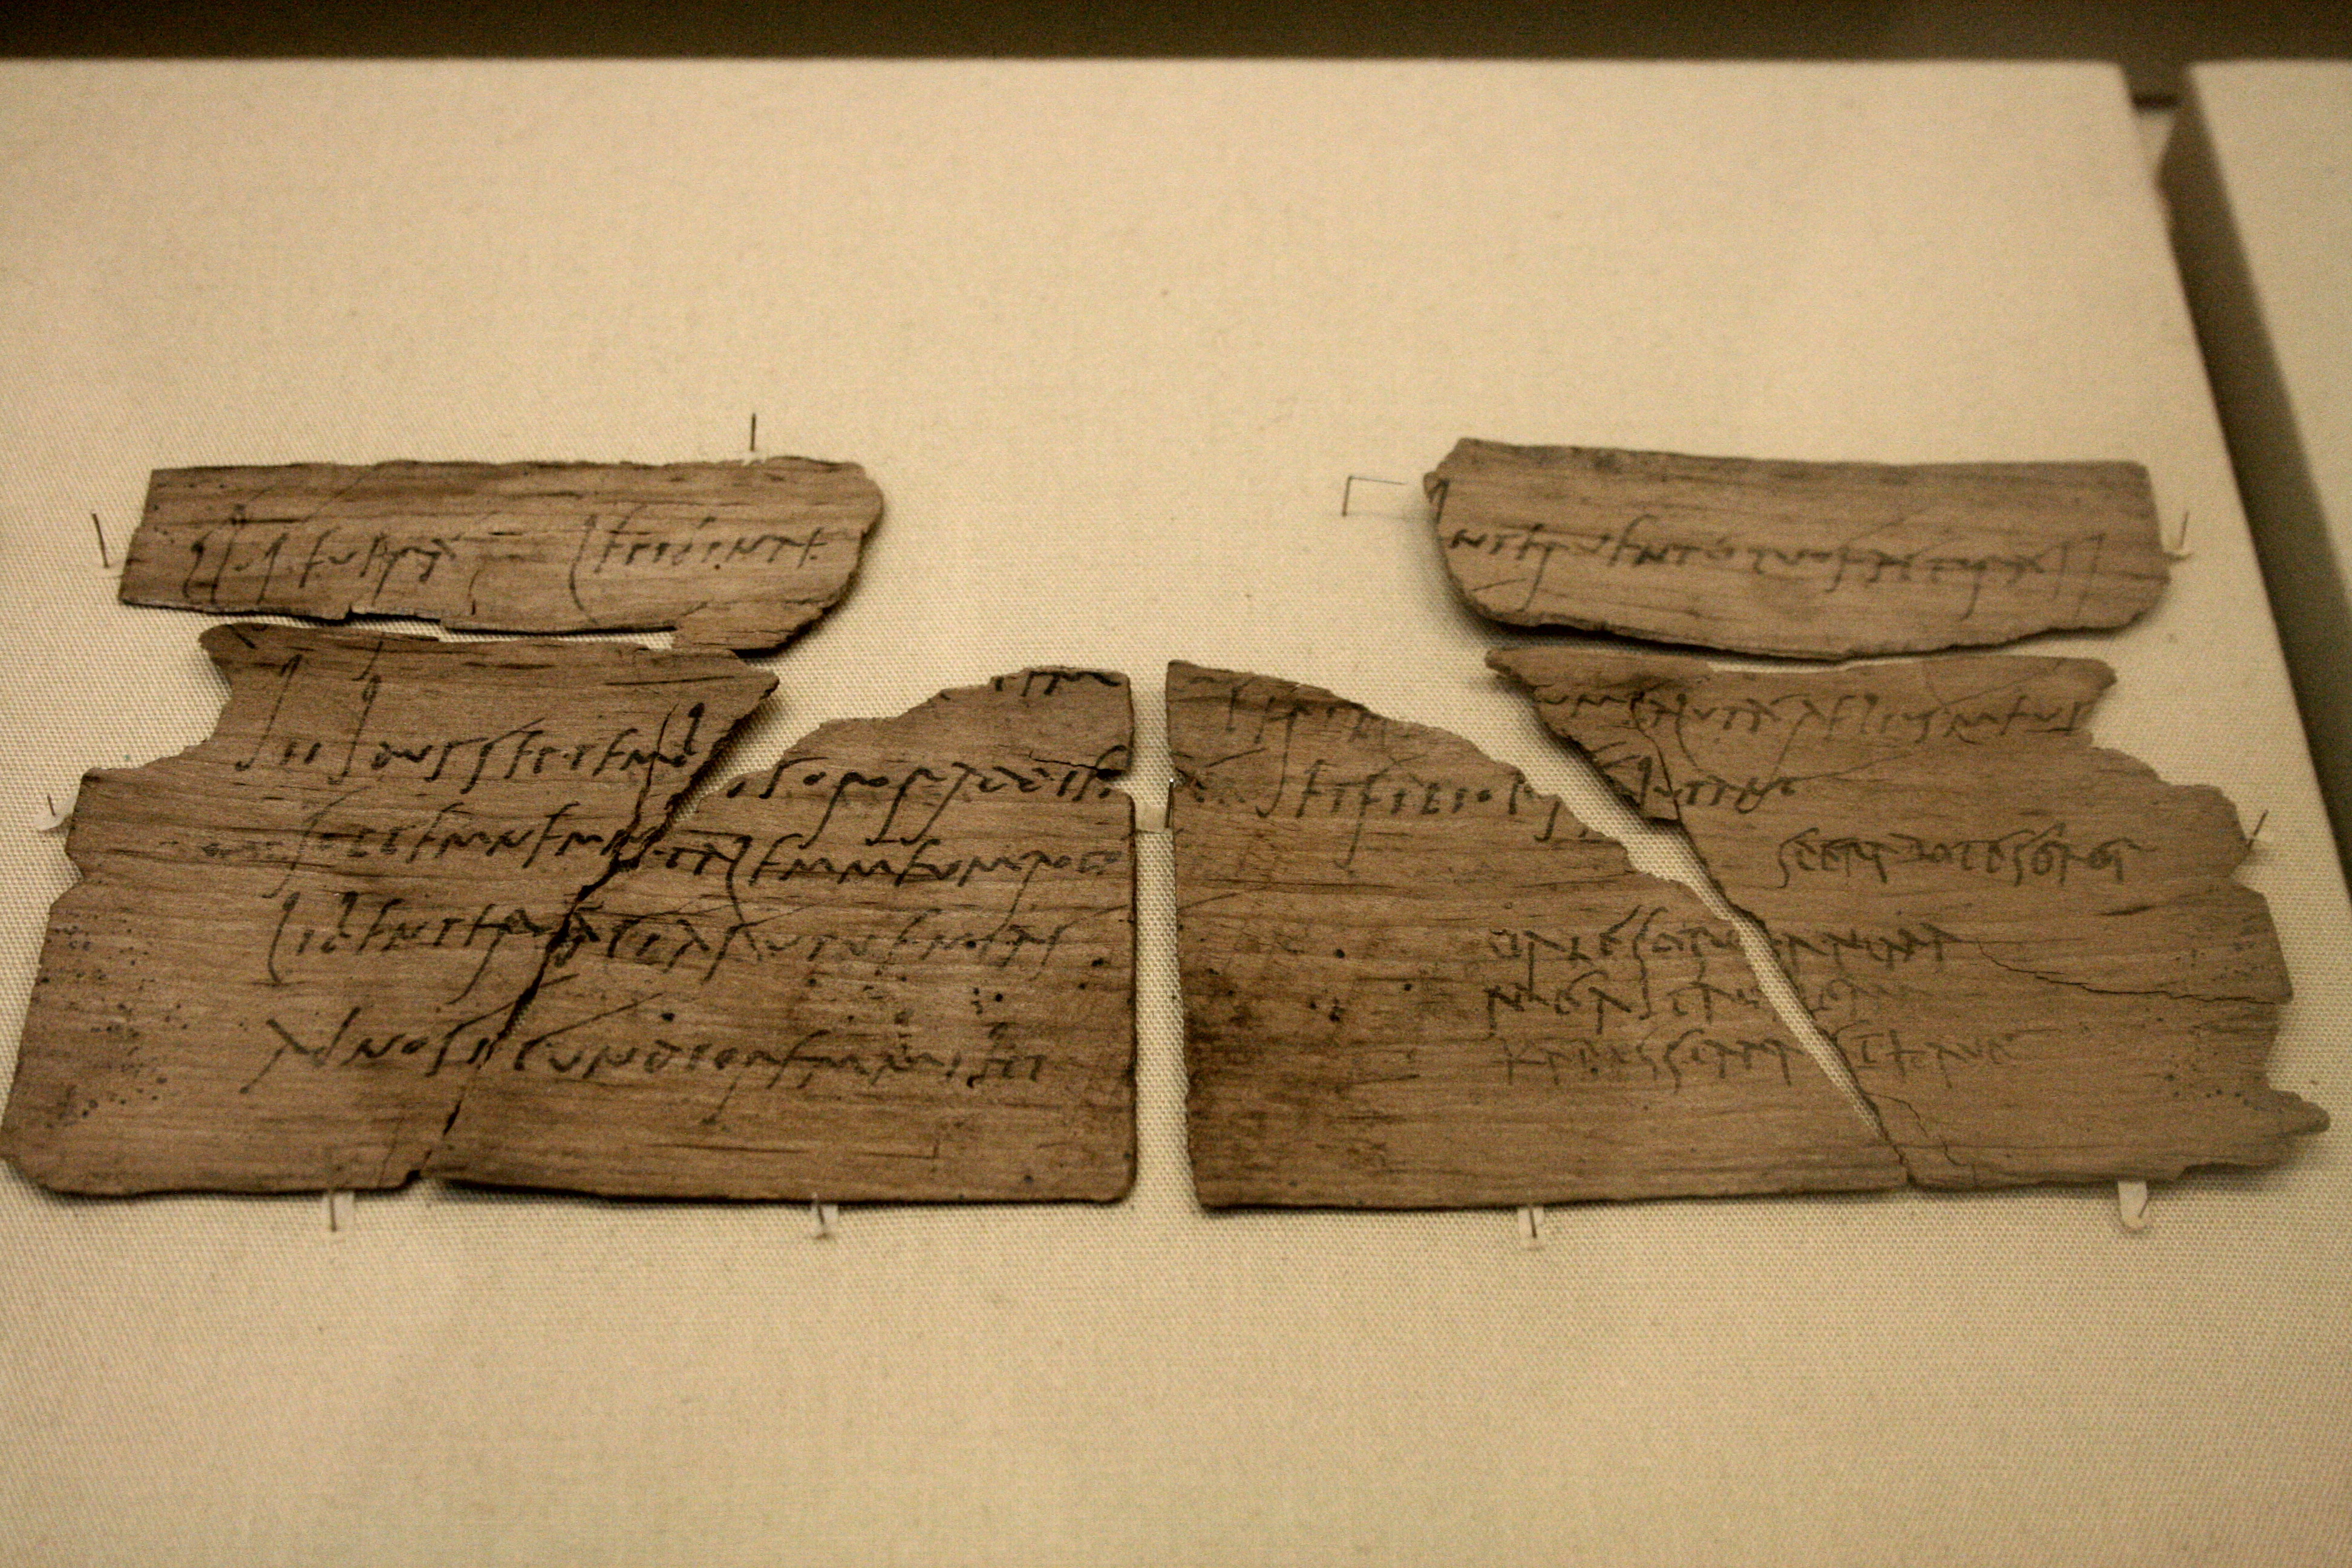 Cl Seuerá Lepidinae
tem
iii Idus Septembr s soror ad diem
sollemnem natalem meum rogó
libenter faciás ut uenias
ad nos iucundiorem mihi
interuentú tuo facturá si
Cerial uum salutá Aelius meus
et filiolus salutant
sperabo te soror
uale soror anima
mea ita ualeam
karissima et haue